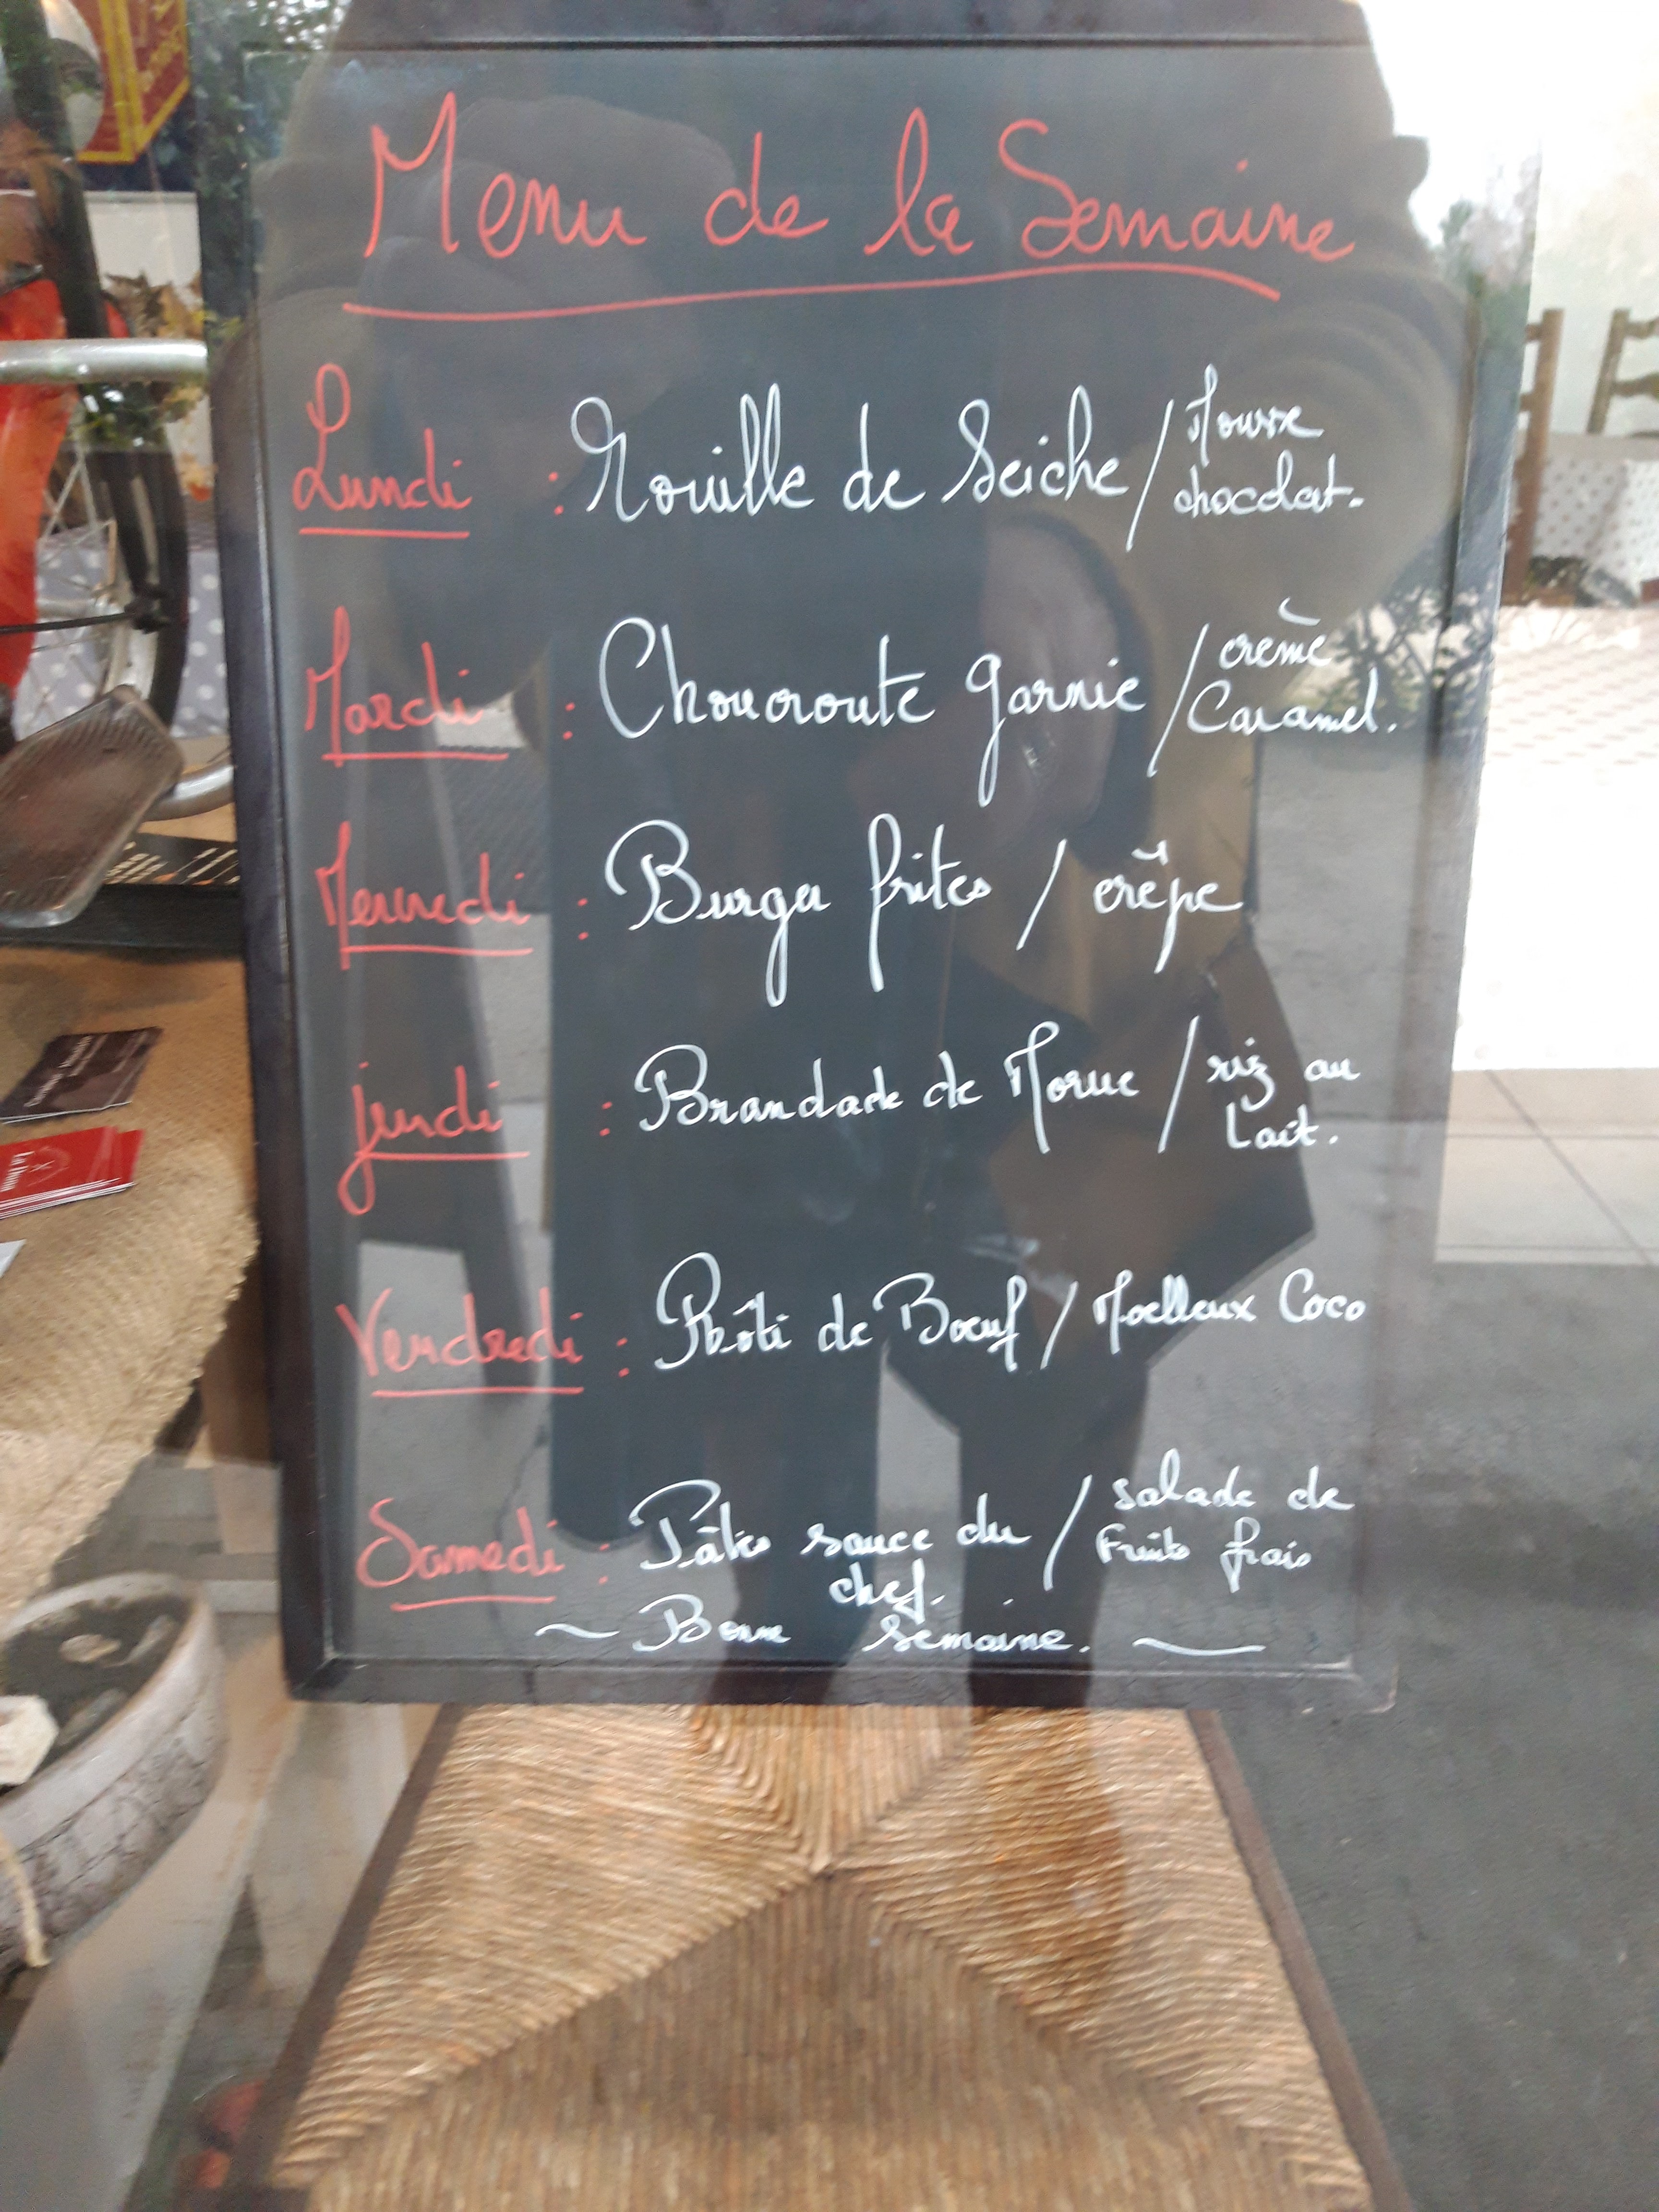 Menu de la Semaine
Lundi : Rouille de Seiche / Mousse
chocolat.
Mardi : Choucroute garnie / crème
Caramel.
Mercredi : Burger frites / crêpe
jeudi : Brandade de Morue / riz au
Lait.
Vendredi : Rôti de Boeuf / Moelleux Coco
Samedi : Pâtes sauce du / salade de
chef. Fruits frais
~ Bonne Semaine. ~